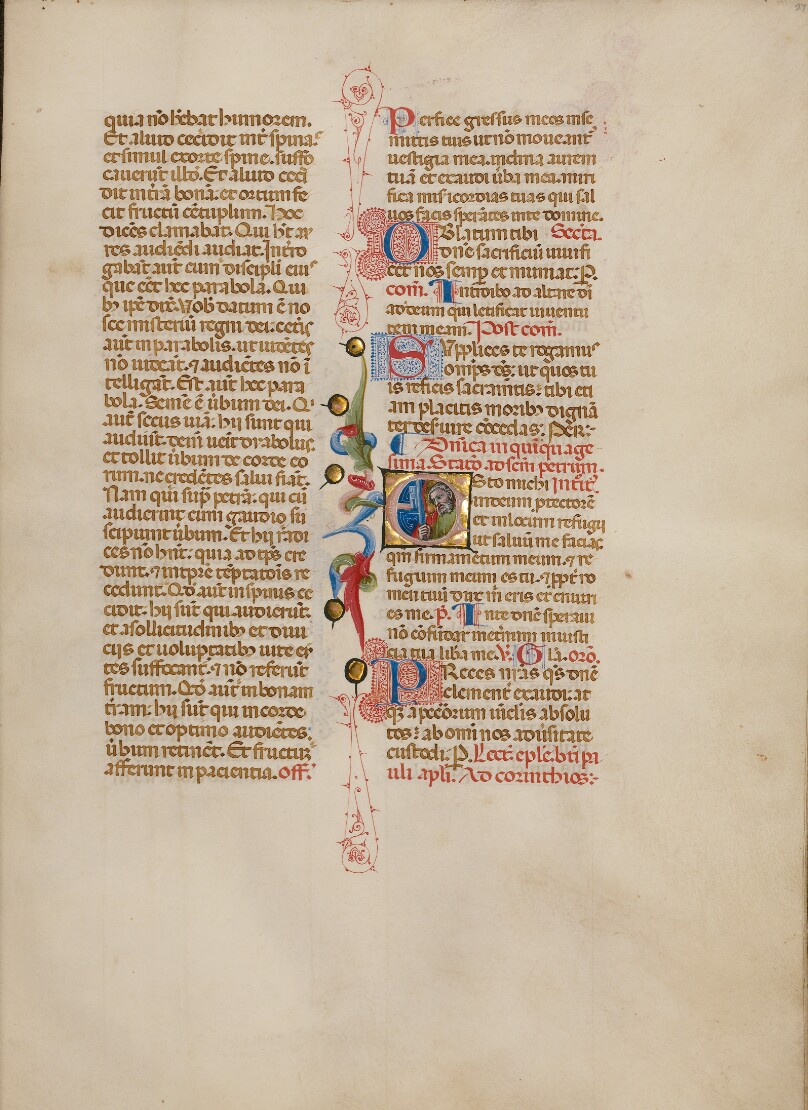 quia nō hēbat humorem.
Et aliud cecidit int̄ spinas
et simul exorte spine. suffo
cauerūt illd̄. Et aliud ceci
dit in t̄rā bonā. et ortum fe
cit fructū cētuplum. Hoc
dicēs clamabat. Qui ht̄ au
res audiēdi audiat. Int̄ro
gabāt aūt eum discipli eius
que eēt hec parabola. Qui
bȝ ip̄e dix̄. Vob̄ datum ē no
sce misteriū regni dei. cet̄is
aūt in parabolis. ut uidētes
nō uideāt. ⁊ audiētes nō ī
telligāt. Est aūt hec para
bola. Semē ē ūbum dei. Qi
aūt secus uiā: hij sunt qui
audiūt. dein̄ ueīt diabolus.
et tollit ūbum de corde eo
rum. ne credētes salui fiāt.
Nam qui sup̄ petrā: qui cū
audierint cum gaudio su
scipiunt ūbum. Et hij radi
ces nō hn̄t: quia ad tp̄s cre
dunt. ⁊ in tp̄re tēptatōis re
cedunt. Qd̄ aūt in spinas ce
cidit: hij sūt qui audierūt.
et a sollicitudinibȝ et diui
cijs et uoluptatibȝ uite eū
tes suffocant̄. ⁊ nō referūt
fructum. Qd̄ aūt in bonam
t̄ram: hij sūt qui in corde
bono et optimo audiētes:
ūbum retinēt. Et fructum
afferunt in pacientia. Off.
Perfice gressus meos in se
mitis tuis ut nō moueant̄
uestigia mea. inclina aurem
tuā et exaudi ūba mea. miri
fica mis̄icordias tuas qui sal
uos facis sperātes in te domine.
Oblatum tibi Sect̄a.
dn̄e sacrificiū uiuifi
cet nos semp̄ et muniat. P.
com̄. Introibo ad altare dī
ad deum qui letificat iuuentu
tem meam. Post com̄.
Supplices te rogamus
om̄ps d̄s: ut quos tu
is reficis sacramtīs: tibi eti
am placitis moribȝ dignā
ter deseruire cōcedas. Per:
Dn̄ica in quīquage
sima. Statō ad scm̄ petrum.
Esto michi Introit̄.
in deum p̄tectorē
et in locum refugii
ut saluū me facias.
qm̄ firmamētum meum. ⁊ re
fugium meum es tu. ⁊ ppt̄ no
men tuū dux m̄ eris et enutri
es me. p̄. In te dn̄e speraui
nō cōfundar in et̄num in iusti
cia tua lib̄a me. V̄. Glā. Orō.
Preces nr̄as q̄s dn̄e
clement̄ exaudi: at
qȝ a pcc̄orum uīclis absolu
tos: ab om̄i nos aduīsitate
custodi. P. Lect̄. ep̄le. bt̄i pa
uli apl̄i. Ad corinthios: